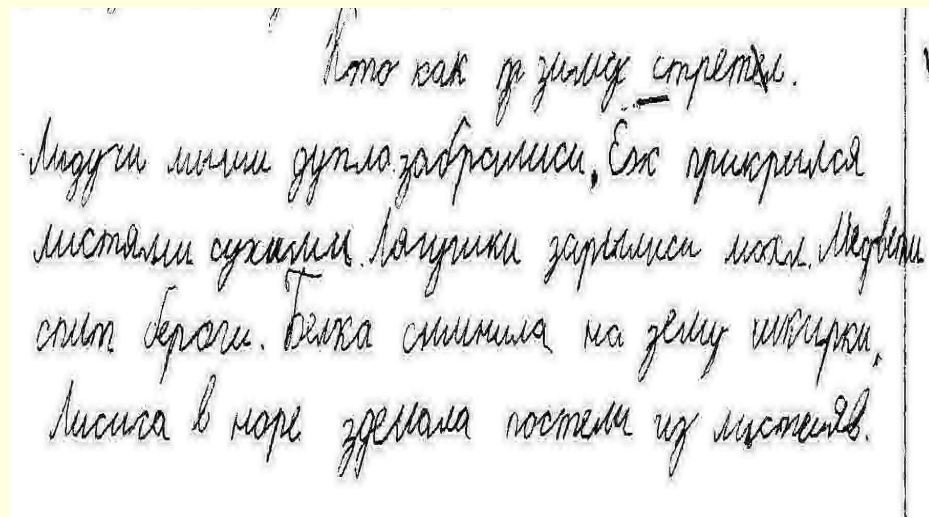 Кто как зиму стретел.
Лидучи мыши дупло забрались. Ёж прикрылся
листями сухими. Лягушки зарылиси мохл. Медвети
спит бероги. Белка сминила на зему шкурки.
Лисиса в норе зделала постели из листеляв.